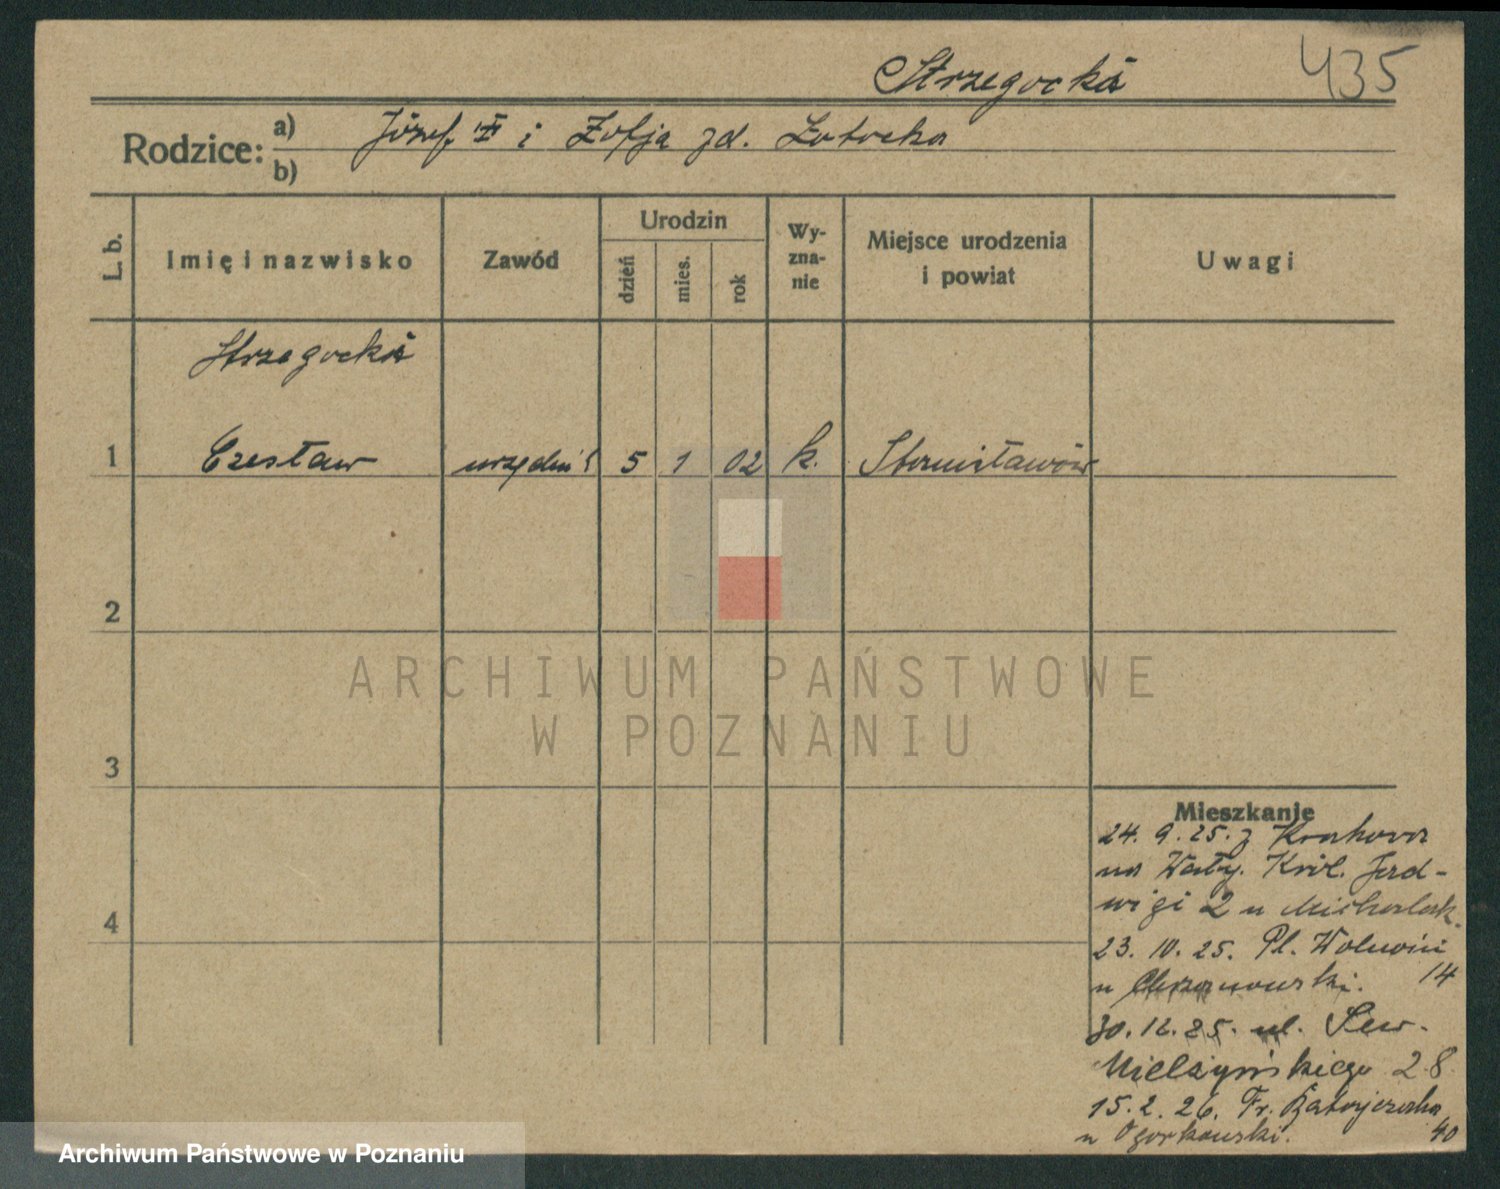 435
Strzegocka
Rodzice: a) Józef i Zofja zd. Łotocka
b)
L. b.
Imię i nazwisko
Zawód
Urodzin
dzień
mies.
rok
Wy-
zna-
nie
Miejsce urodzenia
i powiat
Uwagi
Strzegocki
1 Czesław urzędni 5 1 02 k. Stanisławów
2
3
4
Mieszkanie
24. 9. 25. z Krakowa
na Wały. Król. Jad-
wigi 2 u Michalak.
23. 10. 25. Pl. Wolności
14
u
30. 12. 25. ul. Sew.
Mielżyńskiego 28
15. 2. 26. Fr. Ratajczaka
u Ogorkowski. 40
ARCHIWUM PAŃSTWOWE
W POZNANIU
Archiwum Państwowe w Poznaniu